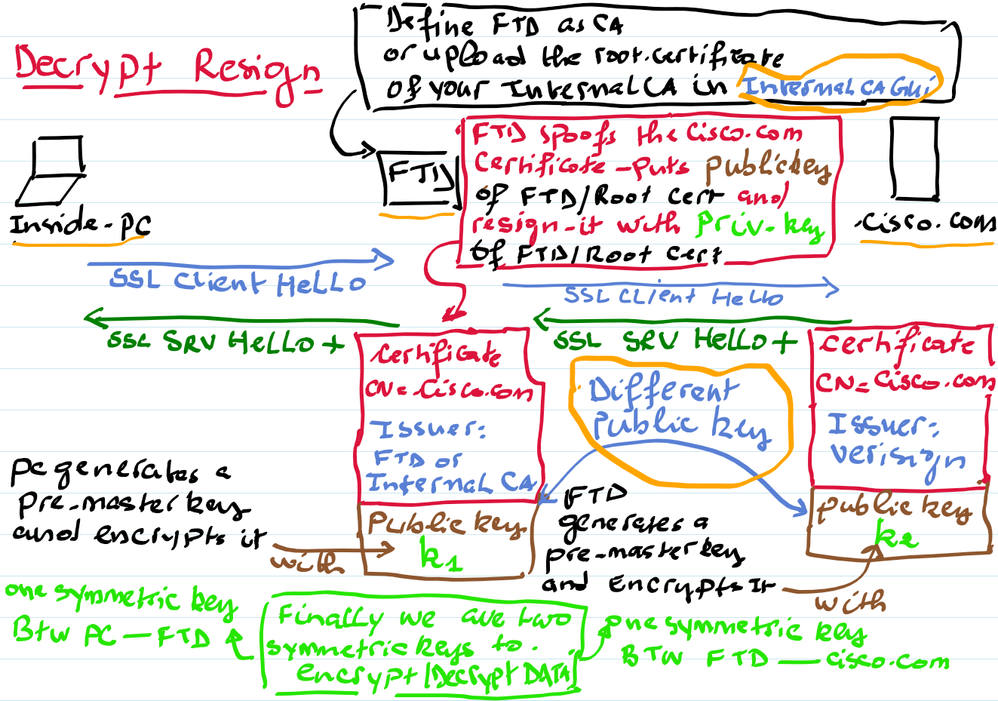 Decrypt Resign
Define FTD as CA
or upload the root.certificate
of your Internal CA in Internal CA Gui
FTD
FTD spoofs the Cisco.com
Certificate - puts publickey
of FTD/Root Cert and
resign-it with Priv-key
of FTD/Root Cert
Inside-PC
.Cisco.com
SSL Client HeLLo
SSL CLient HeLLo
SSL SRV HeLLo +
SSL SRV HeLLo +
Certificate
CN=Cisco.com
Issuer:
FTD or
Internal CA
Public key
k1
Different
Public key
Certificate
CN=Cisco.com
Issuer:
Verisign
public key
k2
pc generates a
pre-master key
and encrypts it
with
FTD
generates a
pre-master key
and Encrypts It
with
one symmetric key
Btw PC — FTD
Finally we are two
symmetric keys to
encrypt/Decrypt DATA
one symmetric key
BTW FTD — cisco.com